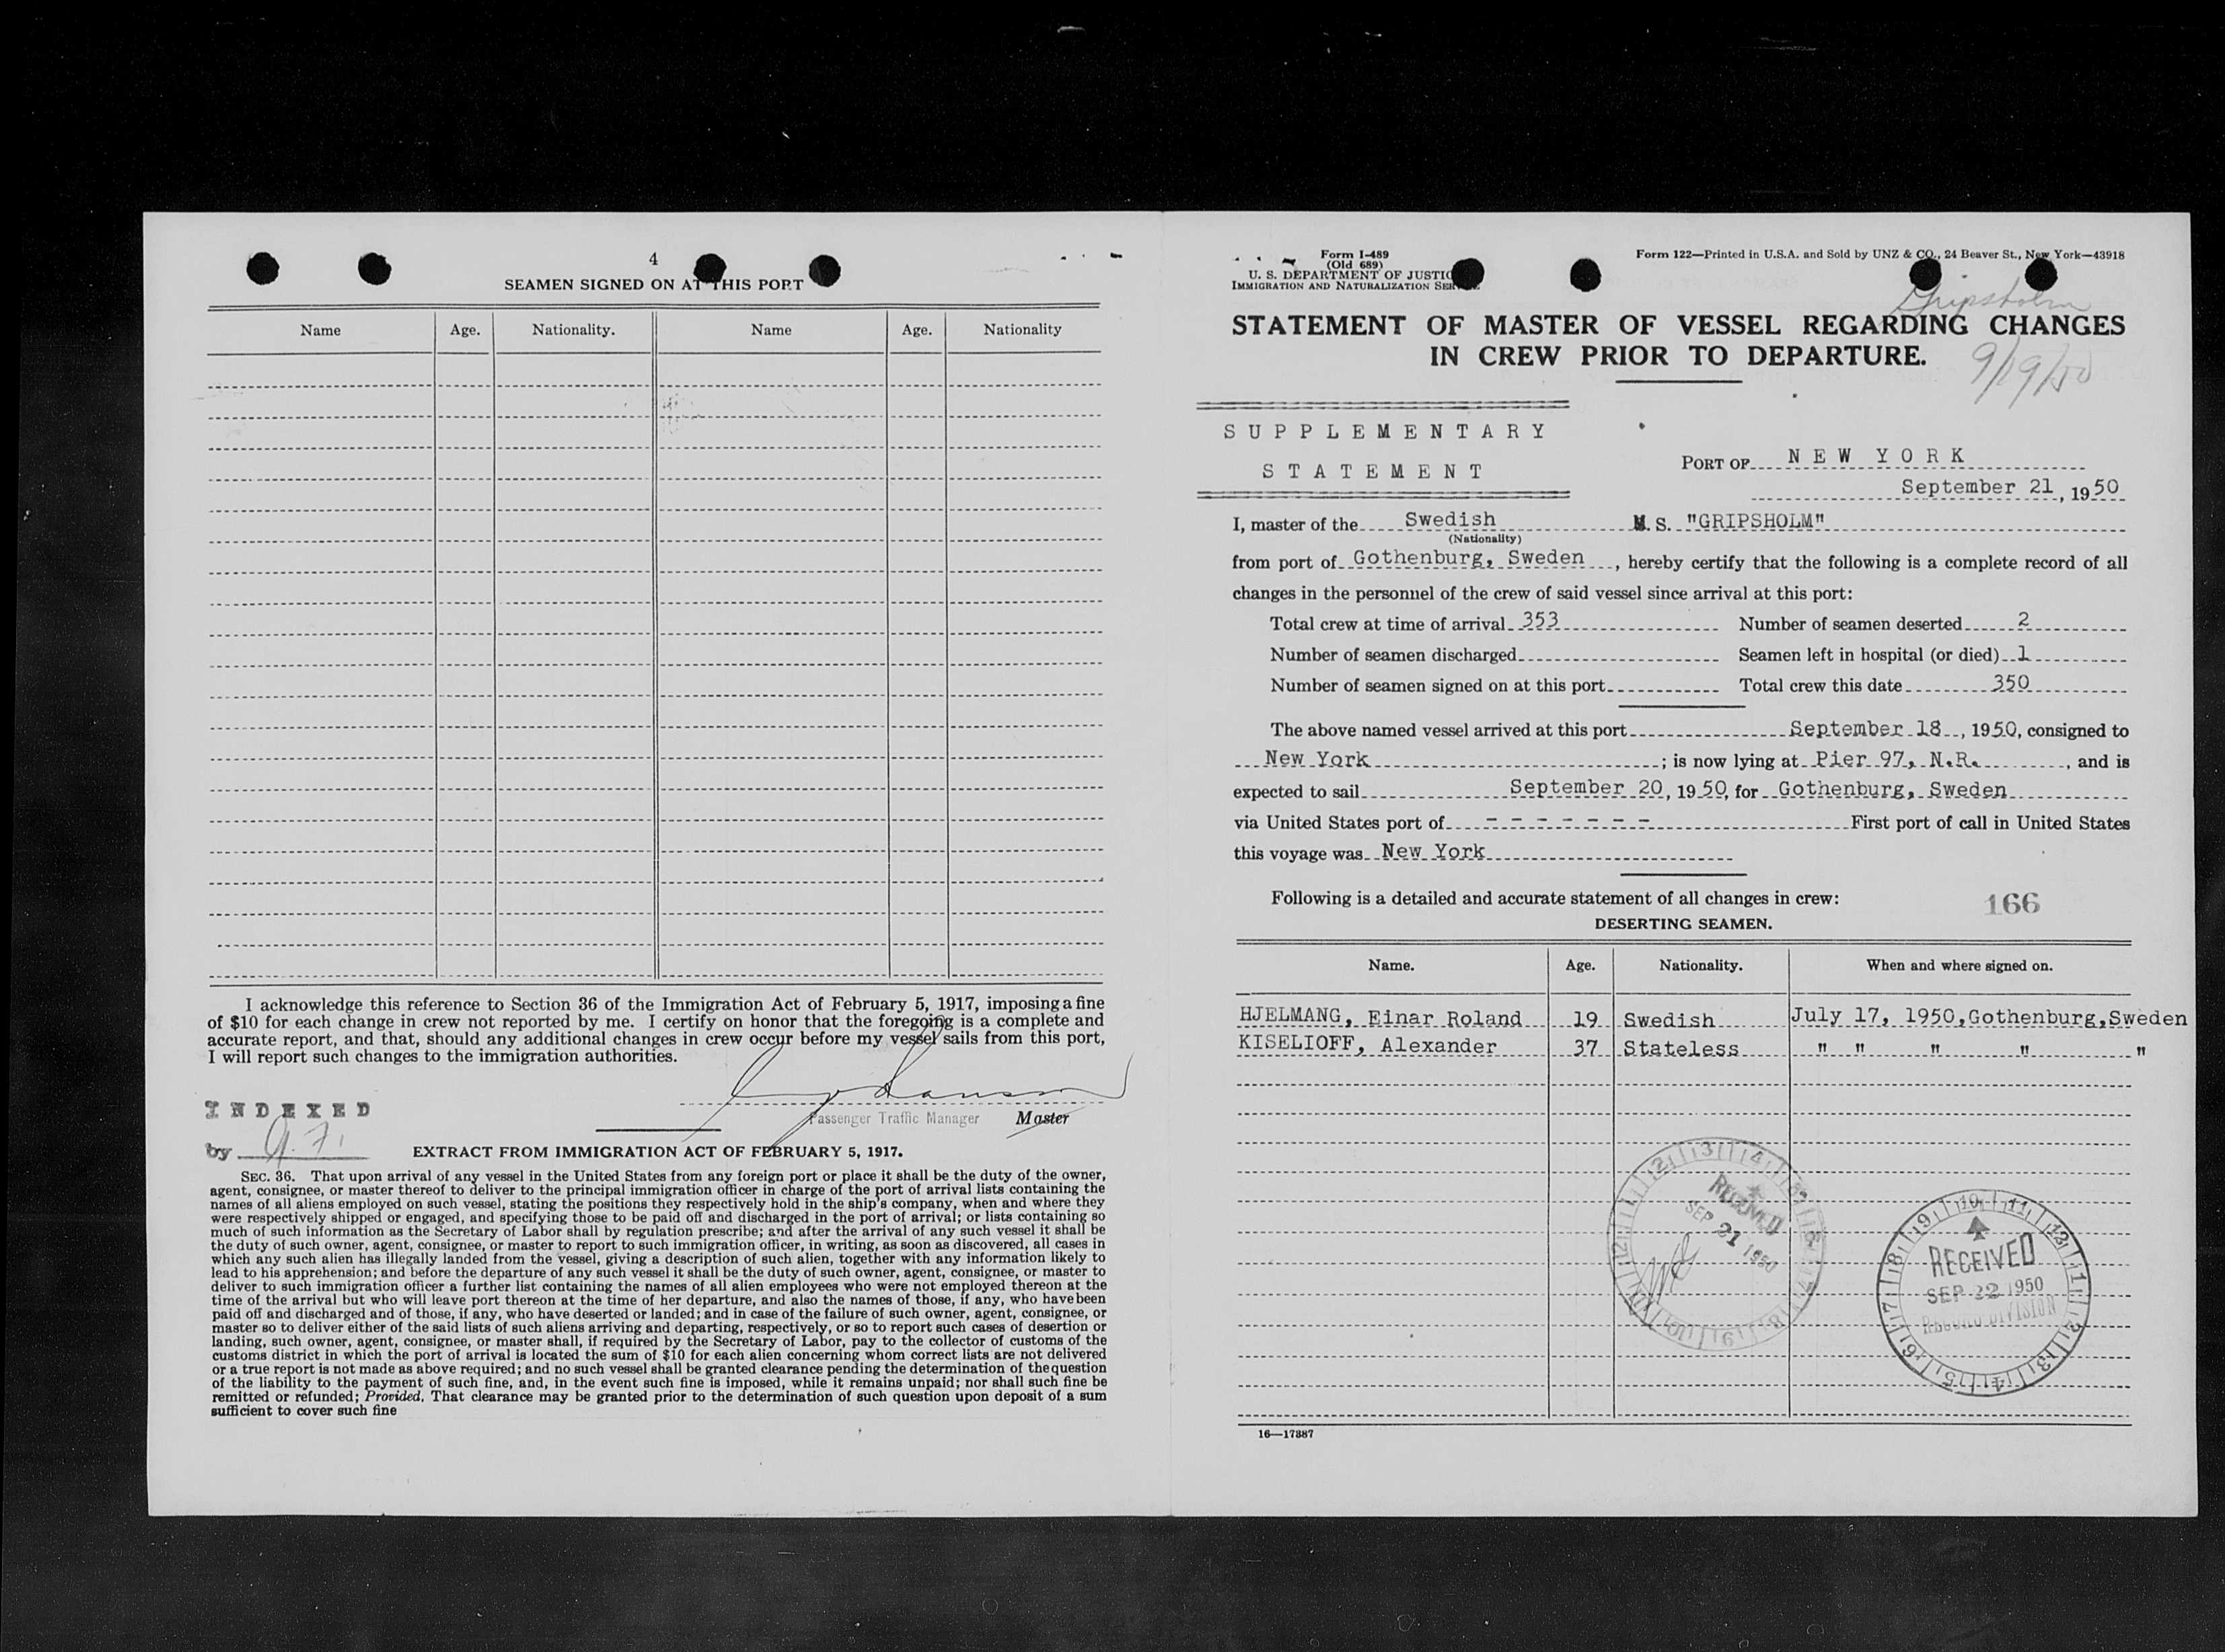 4
SEAMEN SIGNED ON AT THIS PORT
Name Age. Nationality. Name Age. Nationality
I acknowledge this reference to Section 36 of the Immigration Act of February 5, 1917, imposing a fine
of $10 for each change in crew not reported by me. I certify on honor that the foregoing is a complete and
accurate report, and that, should any additional changes in crew occur before my vessel sails from this port,
I will report such changes to the immigration authorities.
Passenger Traffic Manager Master
INDEXED
by
EXTRACT FROM IMMIGRATION ACT OF FEBRUARY 5, 1917.
SEC. 36. That upon arrival of any vessel in the United States from any foreign port or place it shall be the duty of the owner,
agent, consignee, or master thereof to deliver to the principal immigration officer in charge of the port of arrival lists containing the
names of all aliens employed on such vessel, stating the positions they respectively hold in the ship's company, when and where they
were respectively shipped or engaged, and specifying those to be paid off and discharged in the port of arrival; or lists containing so
much of such information as the Secretary of Labor shall by regulation prescribe; and after the arrival of any such vessel it shall be
the duty of such owner, agent, consignee, or master to report to such immigration officer, in writing, as soon as discovered, all cases in
which any such alien has illegally landed from the vessel, giving a description of such alien, together with any information likely to
lead to his apprehension; and before the departure of any such vessel it shall be the duty of such owner, agent, consignee, or master to
deliver to such immigration officer a further list containing the names of all alien employees who were not employed thereon at the
time of the arrival but who will leave port thereon at the time of her departure, and also the names of those, if any, who have been
paid off and discharged and of those, if any, who have deserted or landed; and in case of the failure of such owner, agent, consignee, or
master so to deliver either of the said lists of such aliens arriving and departing, respectively, or so to report such cases of desertion or
landing, such owner, agent, consignee, or master shall, if required by the Secretary of Labor, pay to the collector of customs of the
customs district in which the port of arrival is located the sum of $10 for each alien concerning whom correct lists are not delivered
or a true report is not made as above required; and no such vessel shall be granted clearance pending the determination of the question
of the liability to the payment of such fine, and, in the event such fine is imposed, while it remains unpaid; nor shall such fine be
remitted or refunded; Provided, That clearance may be granted prior to the determination of such question upon deposit of a sum
sufficient to cover such fine
Form I-489
(Old 689)
U. S. DEPARTMENT OF JUSTIC
IMMIGRATION AND NATURALIZATION SER
Form 122—Printed in U.S.A. and Sold by UNZ & CO., 24 Beaver St., New York—43918
Gripsholm
STATEMENT OF MASTER OF VESSEL REGARDING CHANGES
IN CREW PRIOR TO DEPARTURE.
9/19/50
SUPPLEMENTARY
STATEMENT
PORT OF NEW YORK
September 21, 1950
I, master of the Swedish M. S. "GRIPSHOLM"
(Nationality)
from port of Gothenburg, Sweden, hereby certify that the following is a complete record of all
changes in the personnel of the crew of said vessel since arrival at this port:
Total crew at time of arrival 353 Number of seamen deserted 2
Number of seamen discharged Seamen left in hospital (or died) 1
Number of seamen signed on at this port Total crew this date 350
The above named vessel arrived at this port September 18, 1950, consigned to
New York; is now lying at Pier 97, N.R., and is
expected to sail September 20, 1950, for Gothenburg, Sweden
via United States port of - - - - - - - First port of call in United States
this voyage was New York
Following is a detailed and accurate statement of all changes in crew:
166
DESERTING SEAMEN.
Name. Age. Nationality. When and where signed on.
HJELMANG, Einar Roland 19 Swedish July 17, 1950, Gothenburg, Sweden
KISELIOFF, Alexander 37 Stateless " " " " "
RECEIVED
SEP 21 1950
RECEIVED
SEP 22 1950
RECORD DIVISION
16—17887